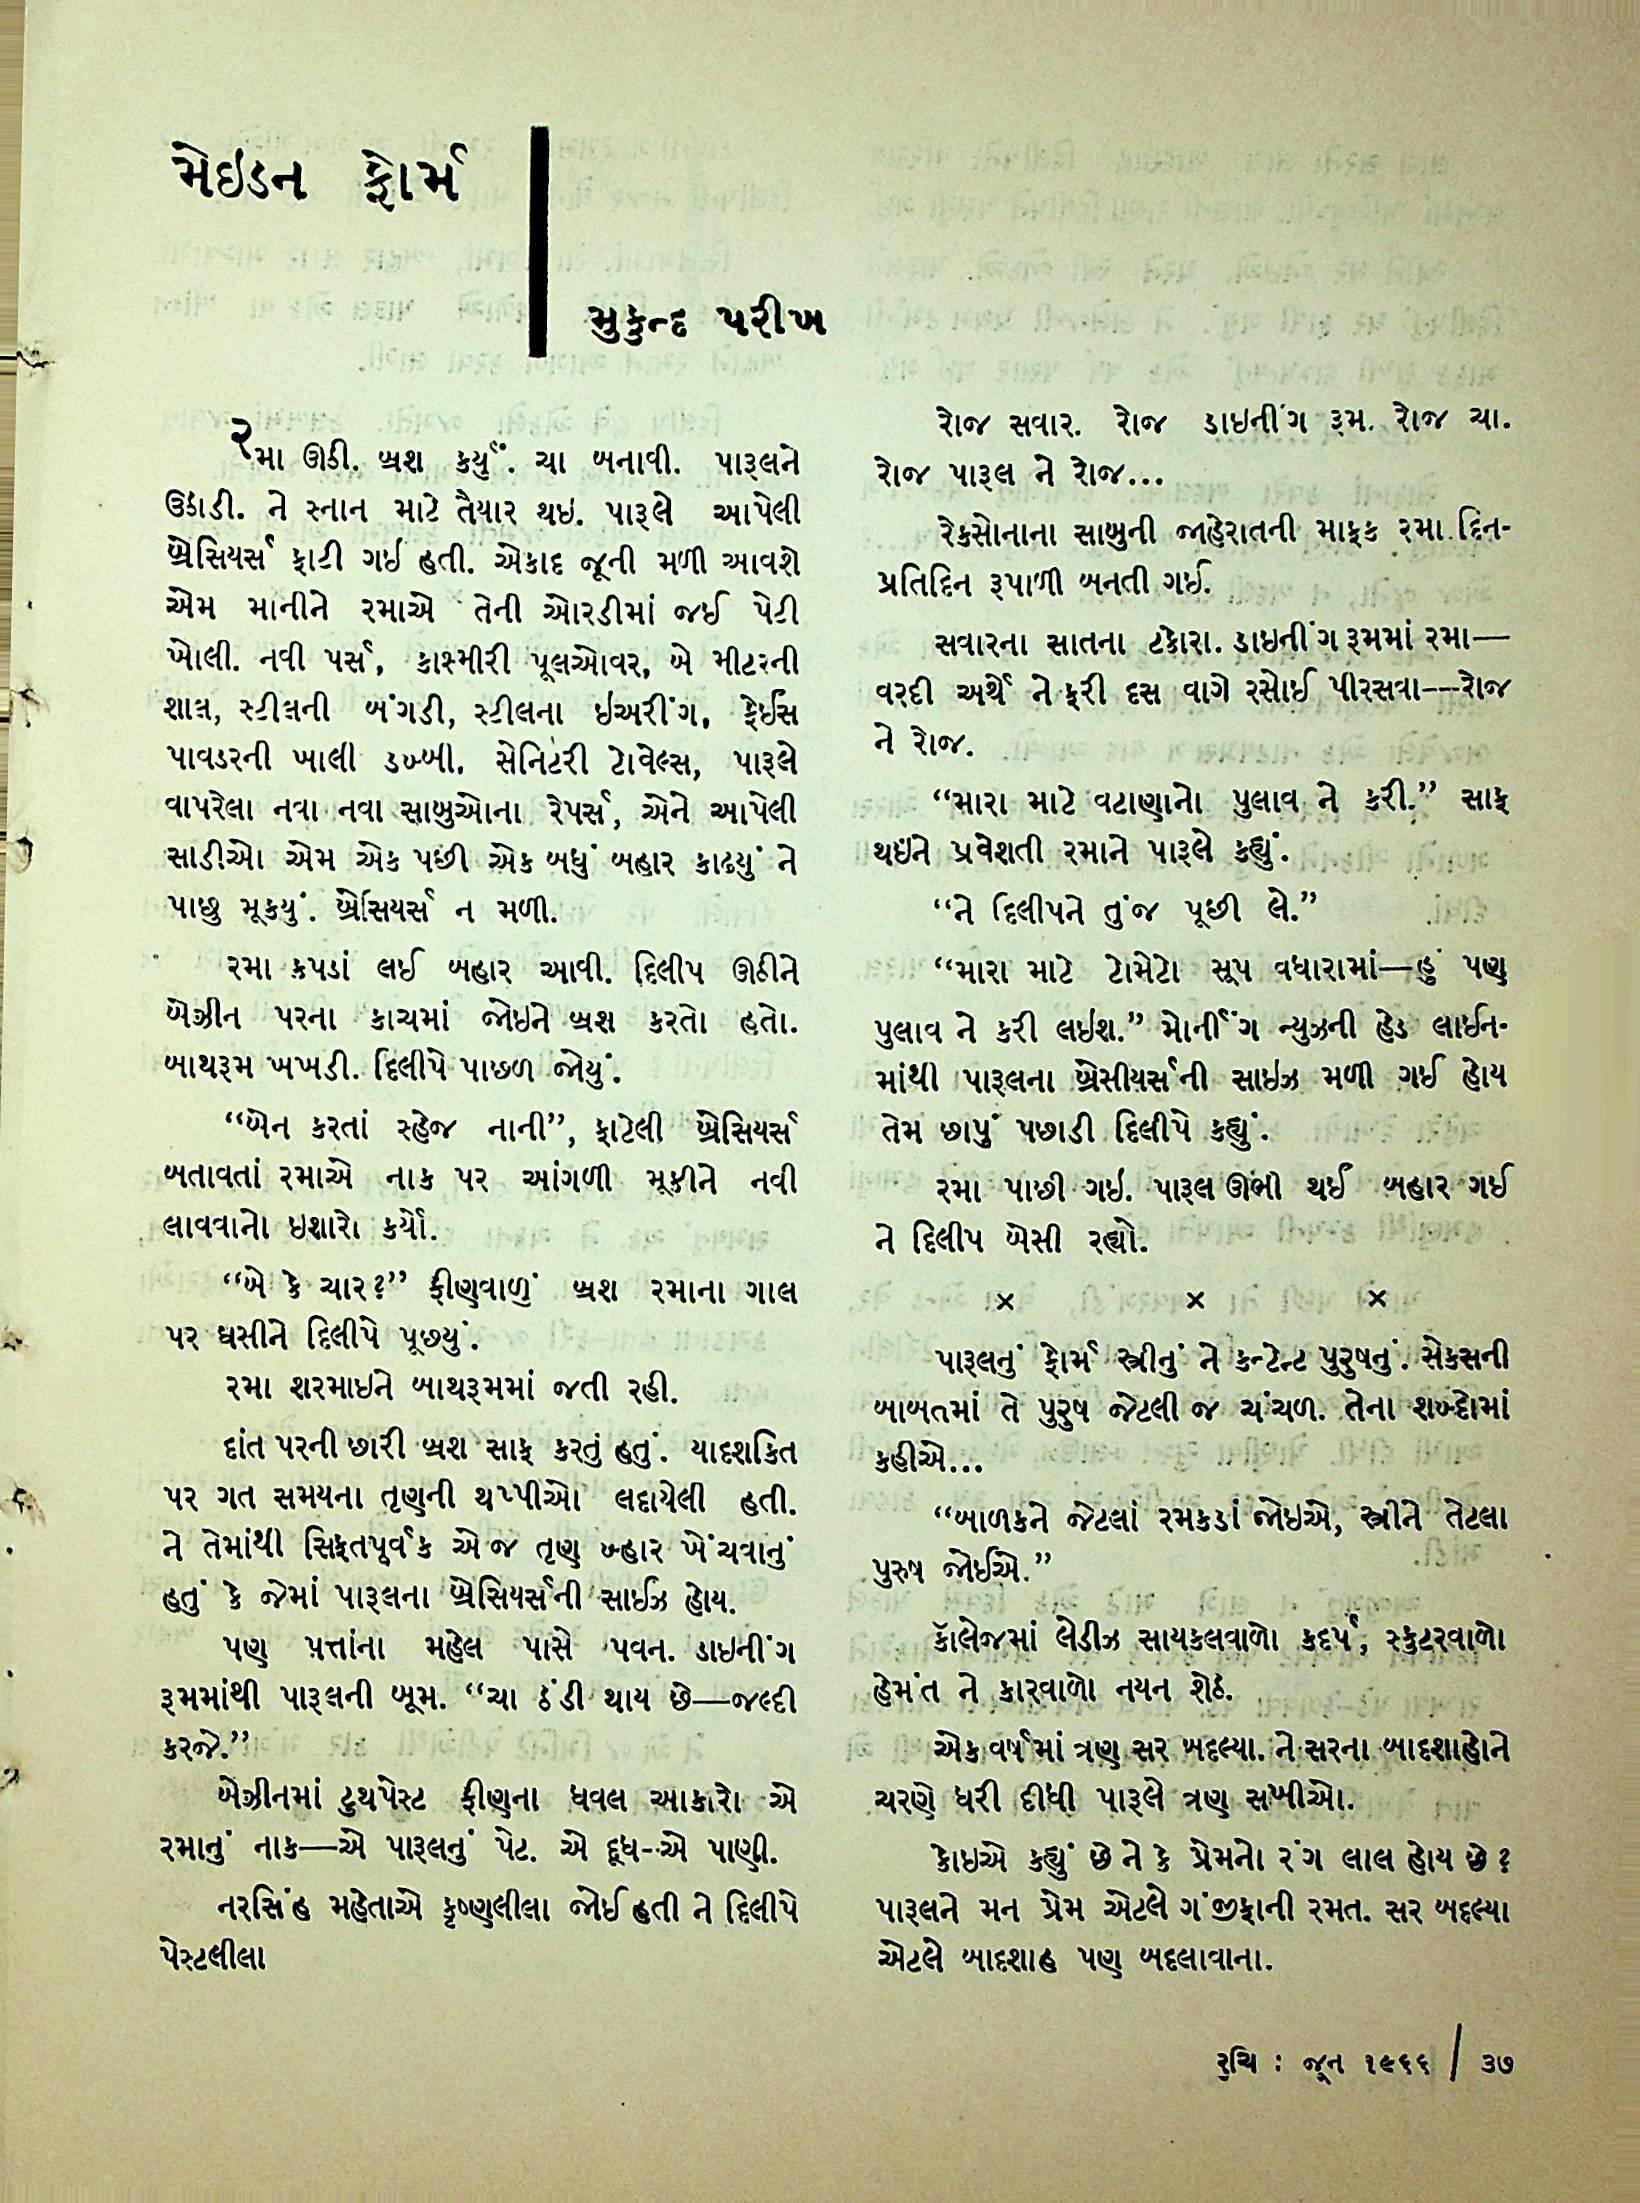 મેઇડન ફોર્મ
મુકુન્દ પરીખ
રમા ઊઠી. બ્રશ કર્યું. ચા બનાવી. પારૂલને
ઉઠાડી. ને સ્નાન માટે તૈયાર થઇ. પારૂલે આપેલી
બ્રેસિયર્સ ફાટી ગઇ હતી. એકાદ જૂની મળી આવશે
એમ માનીને રમાએ તેની ઓરડીમાં જઈ પેટી
ખોલી. નવી પર્સ, કાશ્મીરી પૂલઓવર, બે મીટરની
શાલ, સ્ટીલની બંગડી, સ્ટીલના ઇઅરીંગ, ફેઈસ
પાવડરની ખાલી ડબ્બી. સેનિટરી ટોવેલ્સ, પારૂલે
વાપરેલા નવા નવા સાબુઓના રેપર્સ, એને આપેલી
સાડીઓ એમ એક પછી એક બધું બહાર કાઢયું ને
પાછુ મૂકયું. બ્રેસિયર્સ ન મળી.
રમા કપડાં લઈ બહાર આવી. દિલીપ ઊઠીને
બેઝીન પરના કાચમાં જોઇને બ્રશ કરતો હતો.
બાથરૂમ ખખડી. દિલીપે પાછળ જોયું.
“બેન કરતાં સ્હેજ નાની”, ફાટેલી બ્રેસિયર્સ
બતાવતાં રમાએ નાક પર આંગળી મૂકીને નવી
લાવવાનો ઇશારો કર્યો.
“બે કે ચાર?” ફીણવાળું બ્રશ રમાના ગાલ
પર ઘસીને દિલીપે પૂછયું.
રમા શરમાઇને બાથરૂમમાં જતી રહી.
દાંત પરની છારી બ્રશ સાફ કરતું હતું. યાદશકિત
પર ગત સમયના તૃણની થપ્પીઓ લદાયેલી હતી.
ને તેમાંથી સિફતપૂર્વક એ જ તૃણ બ્હાર ખેંચવાનું
હતું કે જેમાં પારૂલના બ્રેસિયર્સની સાઈઝ હોય.
પણ પત્તાંના મહેલ પાસે પવન. ડાઇનીંગ
રૂમમાંથી પારૂલની બૂમ. “ચા ઠંડી થાય છે—જલ્દી
કરજે.”
બેઝીનમાં ટુથપેસ્ટ ફીણના ધવલ આકારો એ
રમાનું નાક—એ પારૂલનું પેટ. એ દૂધ-એ પાણી.
નરસિંહ મહેતાએ કૃષ્ણલીલા જોઈ હતી ને દિલીપે
પેસ્ટલીલા
રોજ સવાર. રોજ ડાઇનીંગ રૂમ. રોજ ચા.
રોજ પારૂલ ને રોજ...
રેક્સોનાના સાબુની જાહેરાતની માફક રમા દિન-
પ્રતિદિન રૂપાળી બનતી ગઈ.
સવારના સાતના ટકોરા. ડાઇનીંગ રૂમમાં રમા—
વરદી અર્થે ને ફરી દસ વાગે રસોઈ પીરસવા—રોજ
ને રોજ.
“મારા માટે વટાણાનો પુલાવ ને કરી.” સાફ
થઇને પ્રવેશતી રમાને પારૂલે કહ્યું.
“ને દિલીપને તુંજ પૂછી લે.”
“મારા માટે ટોમેટો સૂપ વધારામાં—હું પણ
પુલાવ ને કરી લઇશ.” મોર્નીંગ ન્યુઝની હેડ લાઈન-
માંથી પારૂલના બ્રેસીયર્સની સાઇઝ મળી ગઈ હોય
તેમ છાપું પછાડી દિલીપે કહ્યું.
રમા પાછી ગઇ. પારૂલ ઊભી થઈ બહાર ગઈ
ને દિલીપ બેસી રહ્યો.
× × ×
પારૂલનું ફોર્મ સ્ત્રીનું ને કન્ટેન્ટ પુરુષનું. સેકસની
બાબતમાં તે પુરુષ જેટલી જ ચંચળ. તેના શબ્દોમાં
કહીએ...
“બાળકને જેટલાં રમકડાં જોઇએ, સ્ત્રીને તેટલા
પુરુષ જોઈએ.”
કૉલેજમાં લેડીઝ સાયકલવાળો કદર્પ, સ્કુટરવાળો
હેમંત ને કારવાળો નયન શેઠ.
એક વર્ષમાં ત્રણ સર બદલ્યા. ને સરના બાદશાહોને
ચરણે ધરી દીધી પારૂલે ત્રણ સખીઓ.
કોઇએ કહ્યું છે ને કે પ્રેમનો રંગ લાલ હોય છે?
પારૂલને મન પ્રેમ એટલે ગંજીફાની રમત. સર બદલ્યા
એટલે બાદશાહ પણ બદલાવાના.
રુચિ : જૂન ૧૯૬૬ / ૩૭